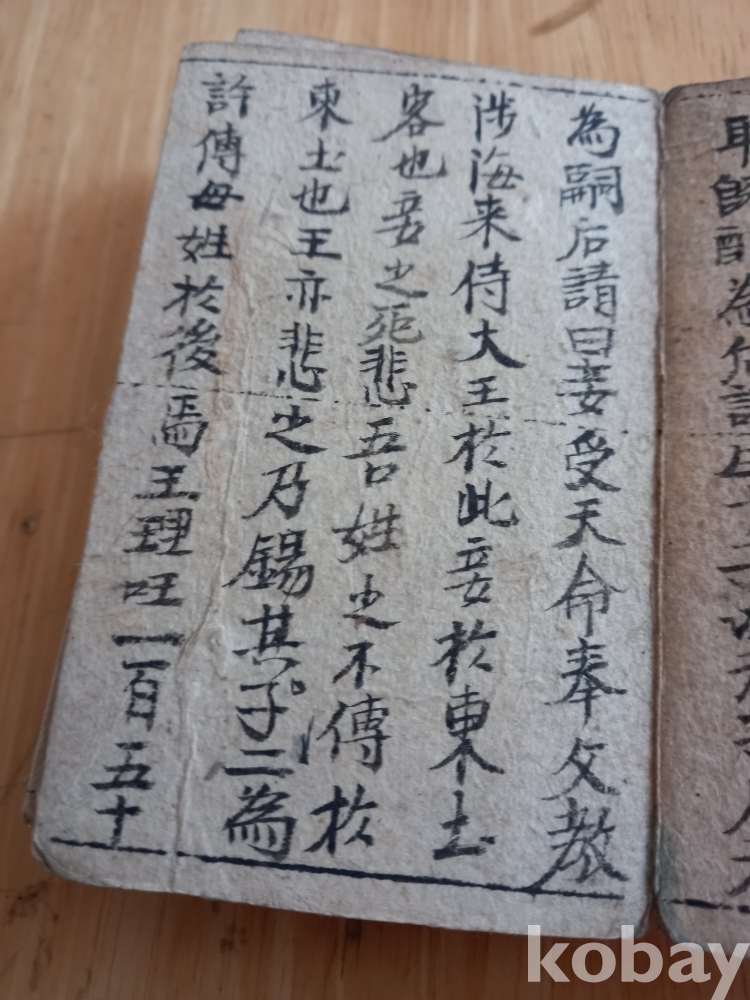 為嗣后請曰妾受天命奉父教
涉海来侍大王於此妾於東土
客也妾之死悲吾姓之不傳於
東土也王亦悲之乃錫其子二為
許傳母姓於後焉王理旺一百五十
耶師
為
kobay